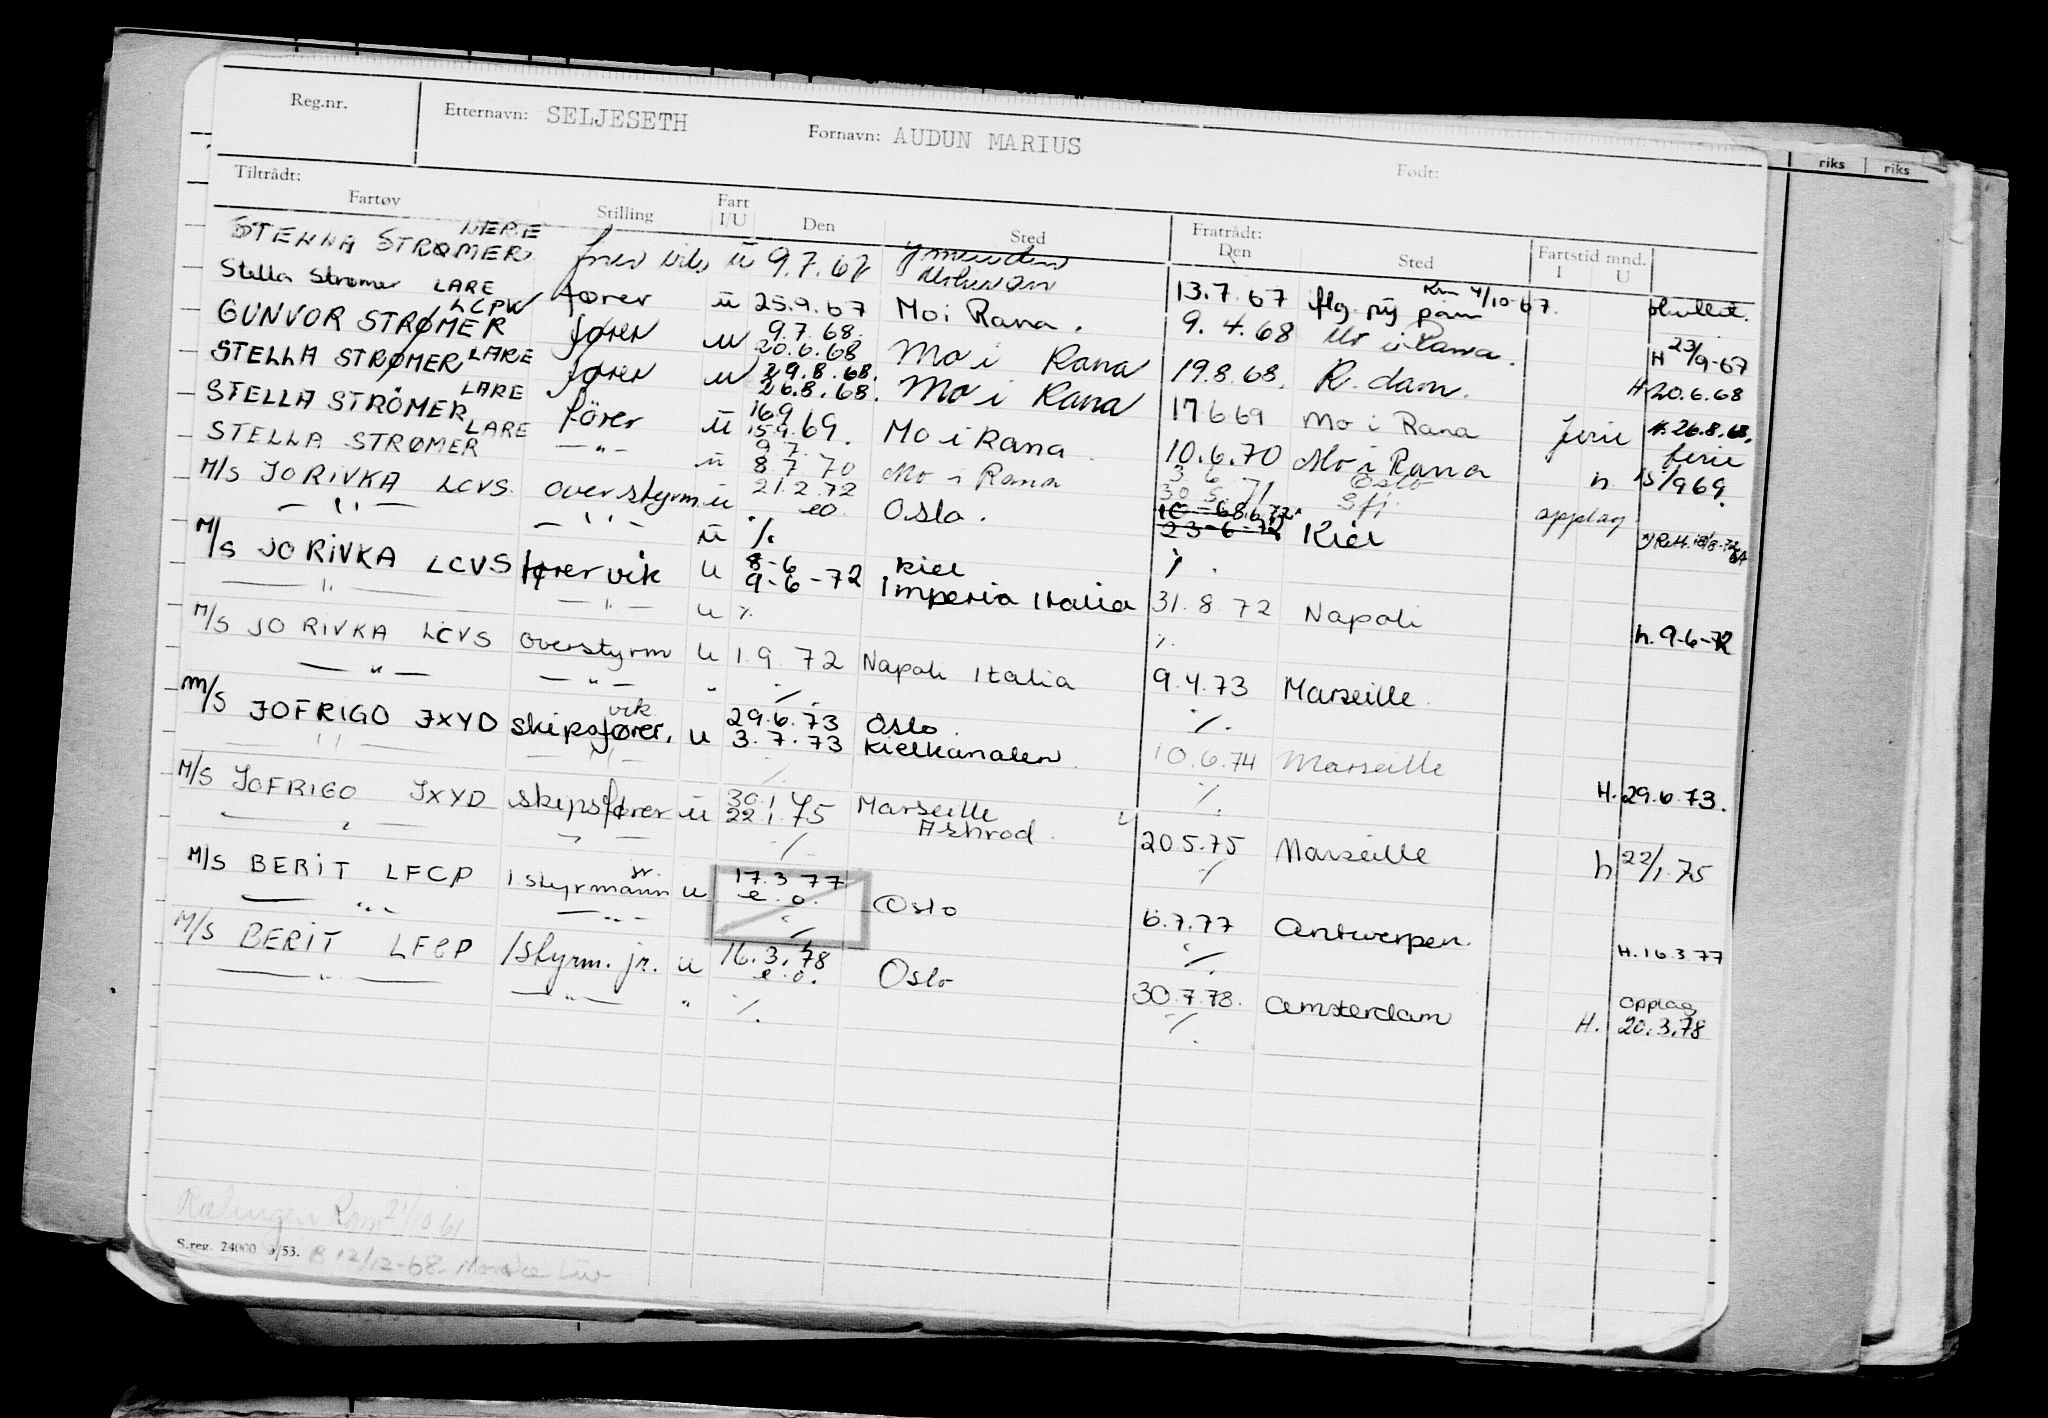 Reg.nr. Etternavn: SELJESETH Fornavn: AUDUN MARIUS Født:
Tiltrådt: Fratrådt:
Fartøy Stilling Fart I/U Den Sted Den Sted Fartstid mnd. I U
STELLA STRØMER ü 9.7.67 13.7.67 flg. ny
Stella Strømer LARE fører ü 25.9.67 Mo i Rana. 9.4.68 Mo i Rana. H 23/9-67
GUNVOR STRØMER LCPW fører u 9.7.68. 20.6.68 Mo i Rana 19.8.68. R.dam. H 20.6.68
STELLA STRØMER LARE fører u 29.8.68. 26.8.68. Mo i Rana 17 6 69 Mo i Rana ferie H. 26.8.68.
STELLA STRÖMER LARE förer ü 16.9 15.9.69. Mo i Rana. 10.6.70 Mo i Rana ferie h 15/9 69.
STELLA STRØMER LARE —"— ü 9.7. 8.7.70 Mo i Rana 3 6 30 5. 71 Oslo Sfj. opplag
M/S JO RIVKA LCVS. overstyrm. ü 21.2.72 eo. Oslo. 23-6-72 Kiel
—"— —"— ü ./. ./.
M/S JO RIVKA LCVS fører vik u 8-6 9-6-72 Kiel Imperia Italia 31.8.72 Napoli h. 9-6-72
—"— —"— u ./. ./.
M/S JO RIVKA LCVS overstyrm u 1.9.72 Napoli Italia 9.4.73 Marseille.
—"— —"— " ./. ./.
M/S JOFRIGO JXYD skipsfører. vik u 29.6.73 3.7.73 Oslo. Kielkanalen. 10.6.74 Marseille H. 29.6.73.
—"— —"— ./. ./.
M/S JOFRIGO JXYD skipsfører ü 30.1 22.1.75 Marseille Ashrod. 20.5.75 Marseille h 22/1.75
—"— —"— ./. ./.
M/S BERIT LFCP 1 styrmann sr. u 17.3.77 e.o. Oslo 6.7.77 Antwerpen. H. 16.3.77
—"— —"— ./. ./.
M/S BERIT LFCP 1styrm. jr. u 16.3.78 e.o. Oslo 30.7.78. Amsterdam opplag H. 20.3.78
—"— —"— " ./. ./.
S.reg. 24000 /53. B 12/12-68
riks riks